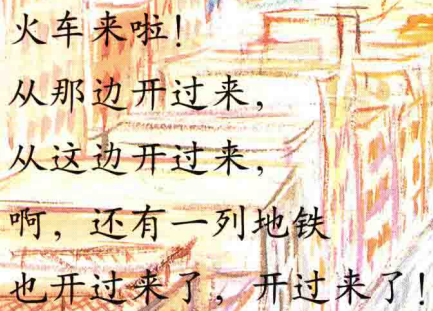 火车来啦！
从那边开过来，
从这边开过来，
啊，还有一列地铁
也开过来了，开过来了！